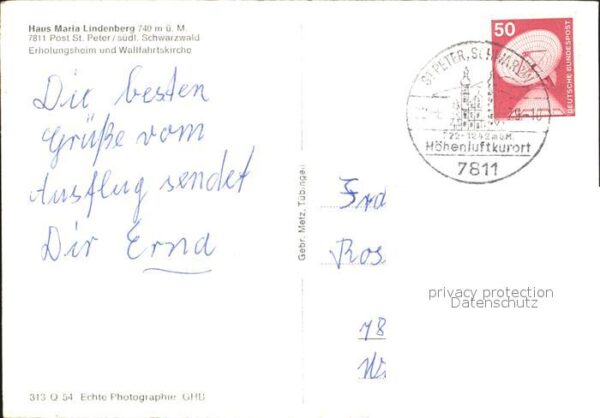 Haus Maria Lindenberg 740 m ü. M.
7811 Post St. Peter / südl. Schwarzwald
Erholungsheim und Wallfahrtskirche
Die besten
Grüße vom
Ausflug sendet
Dir Erna
313 Q 54 Echte Photographie GHB
Gebr. Metz, Tübingen
50
DEUTSCHE BUNDESPOST
ST. PETER, SCHWARZW
722-1242 m ü.M.
Höhenluftkurort
7811
Ros
78
privacy protection
Datenschutz